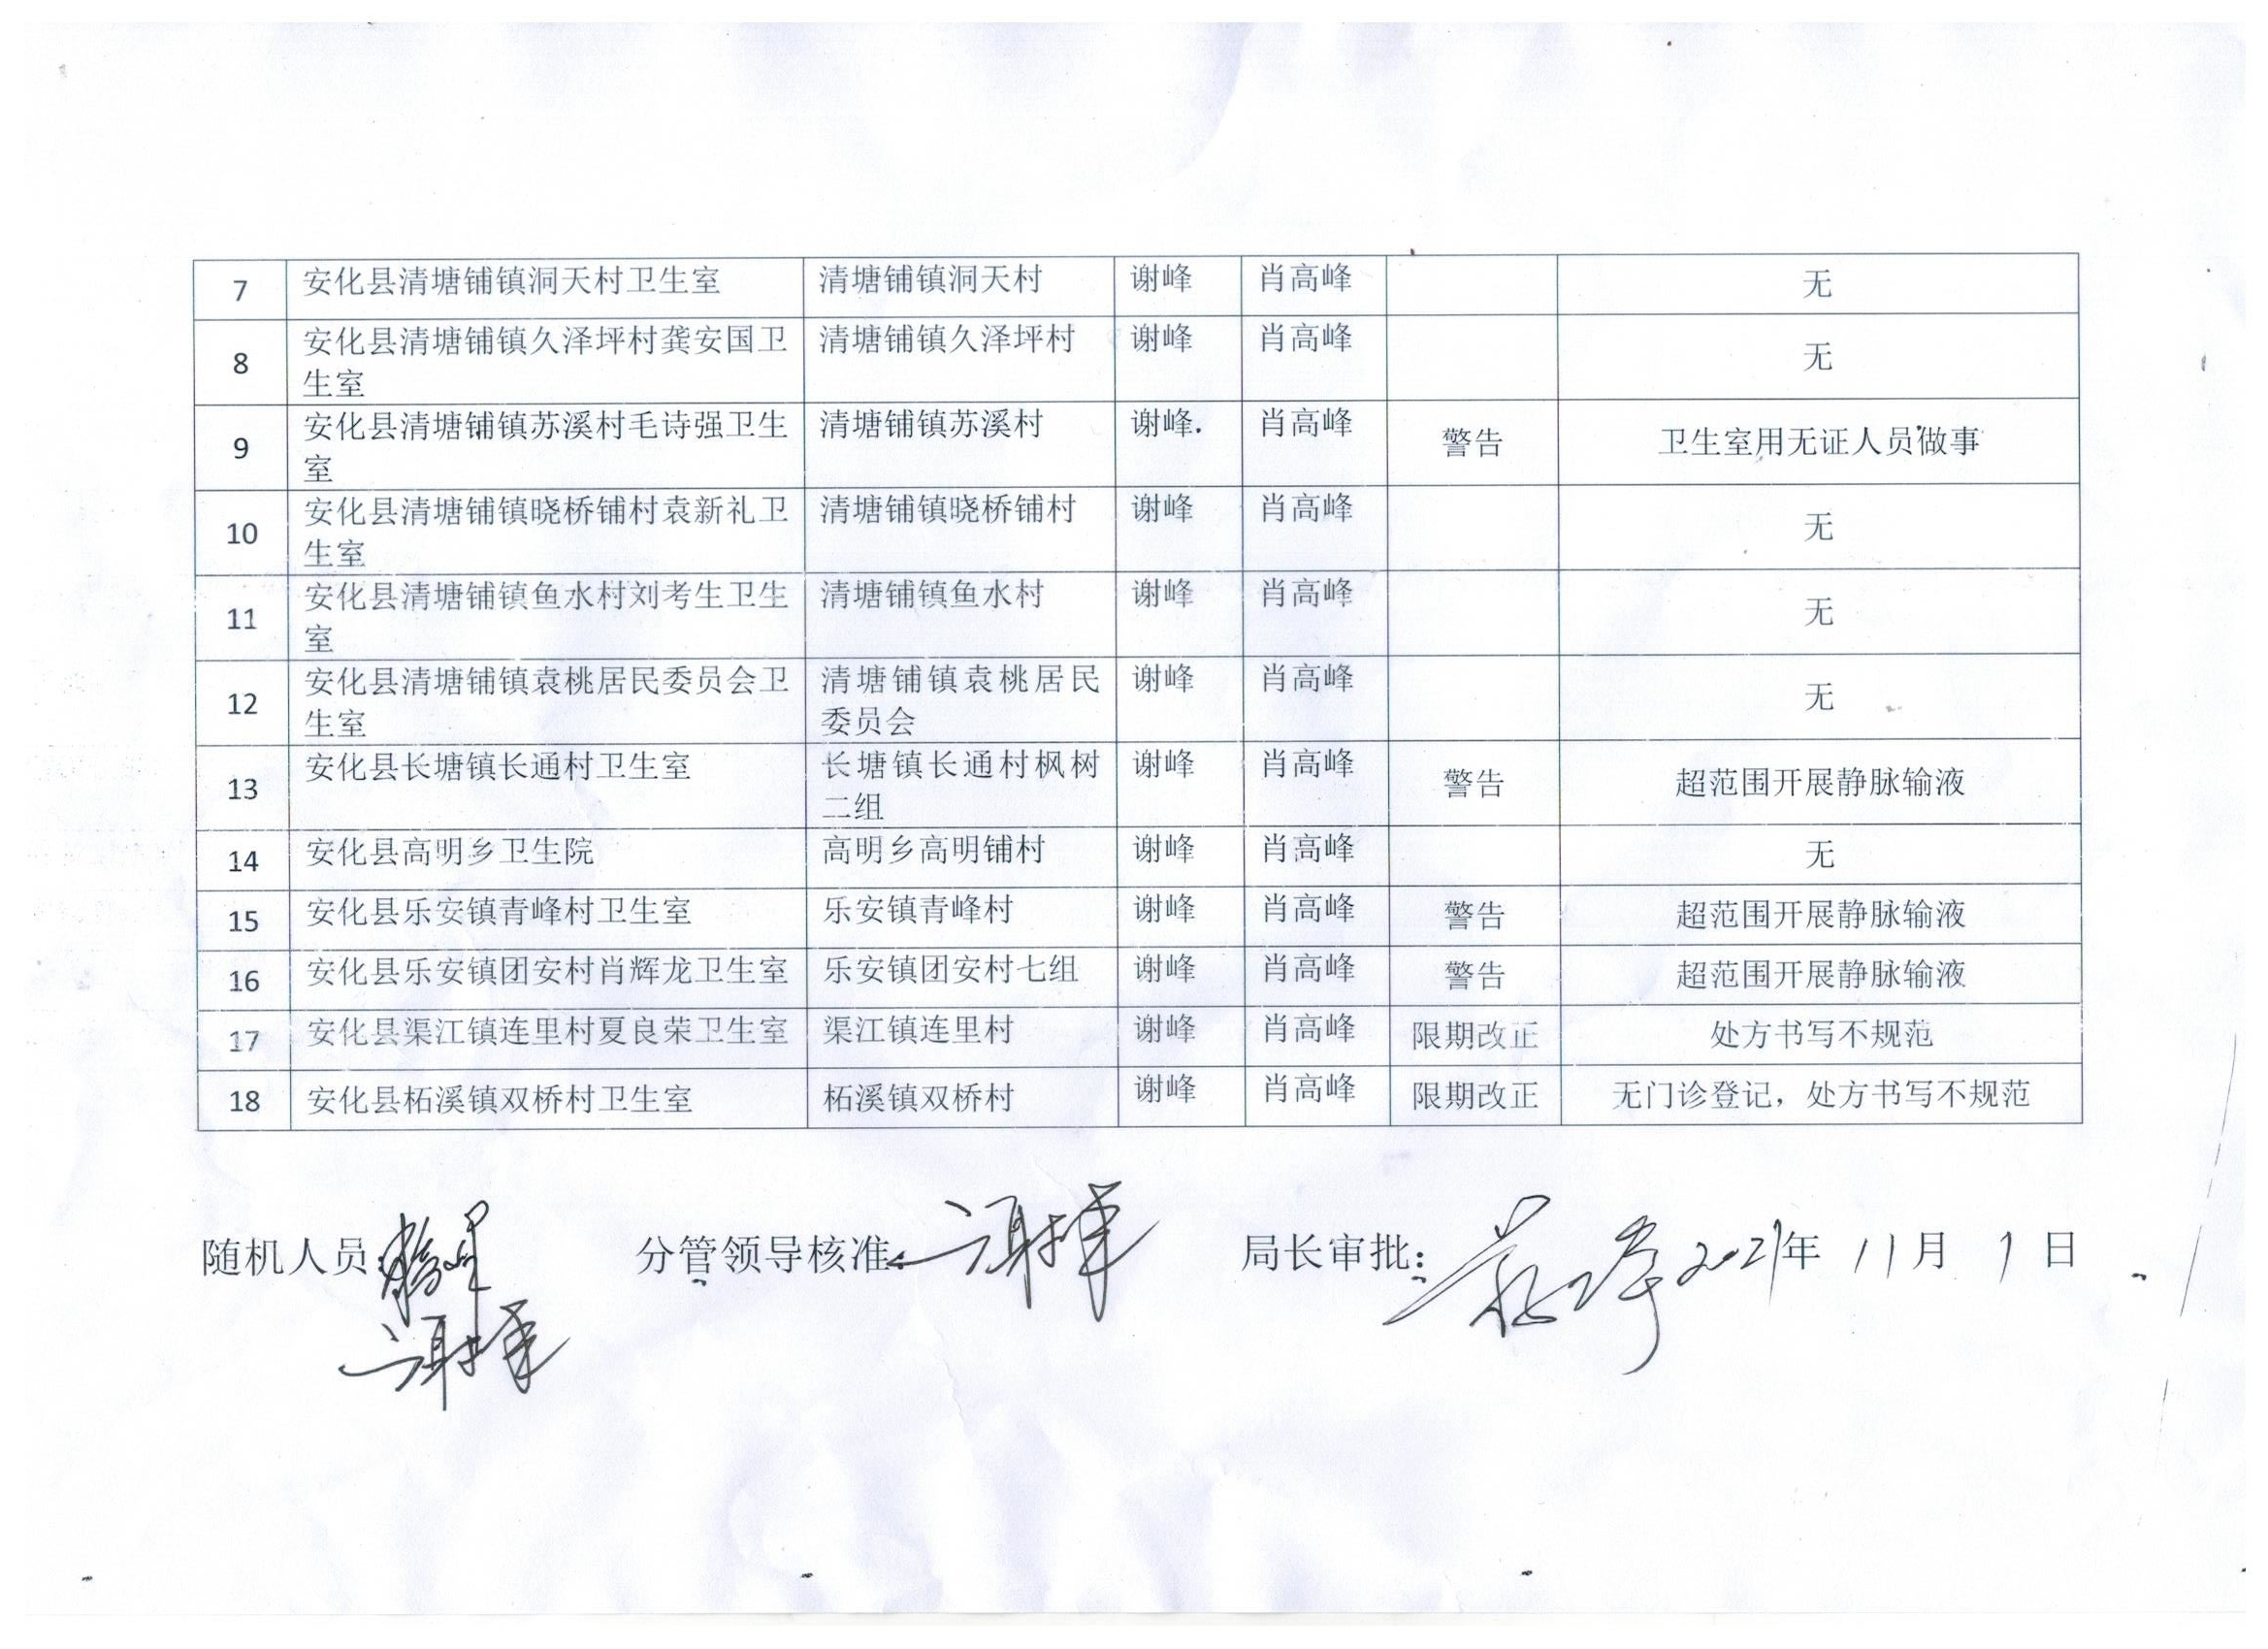 7 安化县清塘铺镇洞天村卫生室 清塘铺镇洞天村 谢峰 肖高峰 无
8 安化县清塘铺镇久泽坪村龚安国卫 清塘铺镇久泽坪村 谢峰 肖高峰 无
生室
9 安化县清塘铺镇苏溪村毛诗强卫生 清塘铺镇苏溪村 谢峰. 肖高峰 警告 卫生室用无证人员做事
室
10 安化县清塘铺镇晓桥铺村袁新礼卫 清塘铺镇晓桥铺村 谢峰 肖高峰 无
生室
11 安化县清塘铺镇鱼水村刘考生卫生 清塘铺镇鱼水村 谢峰 肖高峰 无
室
12 安化县清塘铺镇袁桃居民委员会卫 清塘铺镇袁桃居民 谢峰 肖高峰 无
生室 委员会
13 安化县长塘镇长通村卫生室 长塘镇长通村枫树 谢峰 肖高峰 警告 超范围开展静脉输液
二组
14 安化县高明乡卫生院 高明乡高明铺村 谢峰 肖高峰 无
15 安化县乐安镇青峰村卫生室 乐安镇青峰村 谢峰 肖高峰 警告 超范围开展静脉输液
16 安化县乐安镇团安村肖辉龙卫生室 乐安镇团安村七组 谢峰 肖高峰 警告 超范围开展静脉输液
17 安化县渠江镇连里村夏良荣卫生室 渠江镇连里村 谢峰 肖高峰 限期改正 处方书写不规范
18 安化县柘溪镇双桥村卫生室 柘溪镇双桥村 谢峰 肖高峰 限期改正 无门诊登记，处方书写不规范
随机人员: 肖高峰 分管领导核准: 谢峰 局长审批: 2021年 11月 1日
谢峰